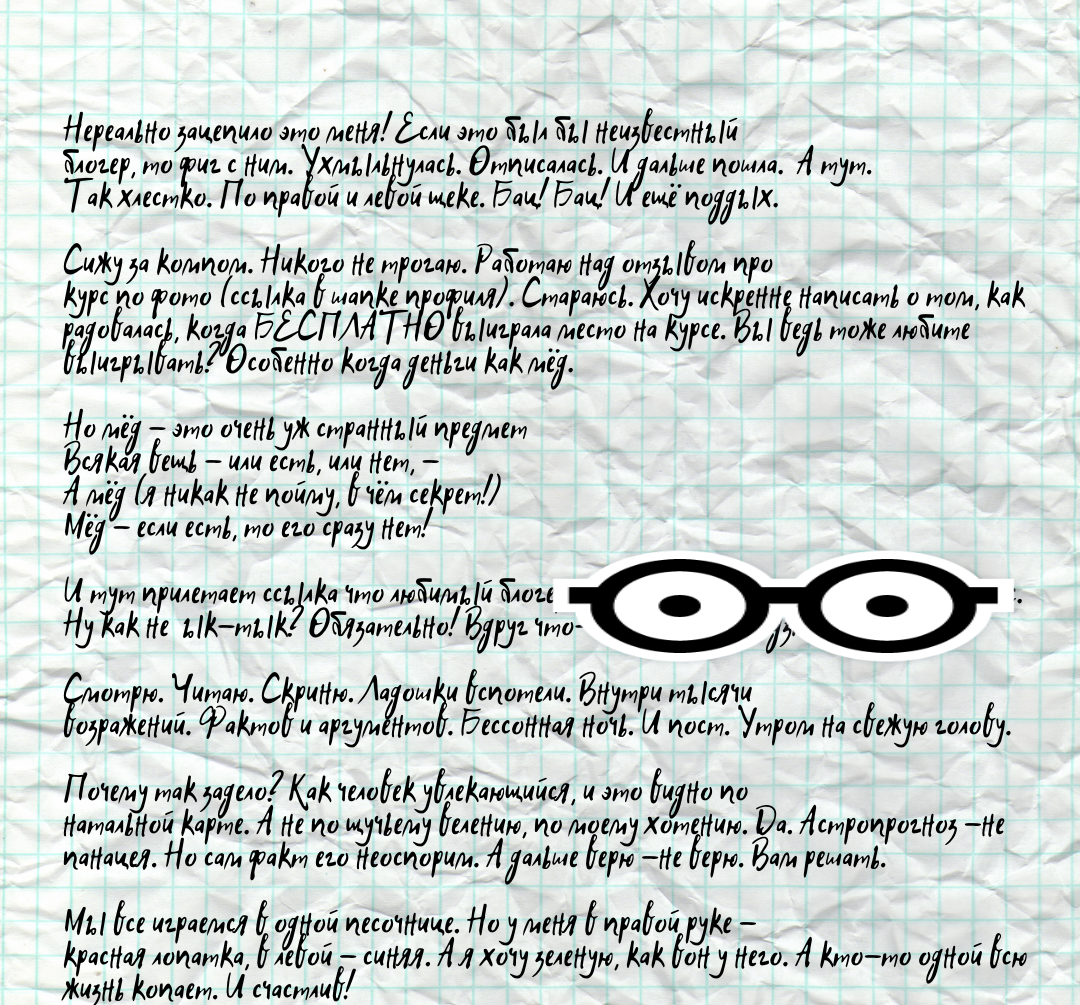 Нереально зацепило это меня! Если это был бы неизвестный
блогер, то фиг с ним. Ухмыльнулась. Отписалась. И дальше пошла. А тут.
Так хлестко. По правой и левой щеке. Бац! Бац! И ещё поддых.
Сижу за компом. Никого не трогаю. Работаю над отзывом про
курс по фото (ссылка в шапке профиля). Стараюсь. Хочу искренне написать о том, как
радовалась, когда БЕСПЛАТНО выиграла место на курсе. Вы ведь тоже любите
выигрывать? Особенно когда деньги как мёд.
Но мёд – это очень уж странный предмет
Всякая вещь – или есть, или нет, –
А мёд (я никак не пойму, в чём секрет!)
Мёд – если есть, то его сразу нет!
И тут прилетает ссылка что любимый
Ну как не ык–тык? Обязательно! Вдруг что-
Смотрю. Читаю. Скриню. Ладошки вспотели. Внутри тысячи
возражений. Фактов и аргументов. Бессонная ночь. И пост. Утром на свежую голову.
Почему так задело? Как человек увлекающийся, и это видно по
натальной карте. А не по щучьему велению, по моему хотению. Да. Астропрогноз –не
панацея. Но сам факт его неоспорим. А дальше верю –не верю. Вам решать.
Мы все играемся в одной песочнице. Но у меня в правой руке –
красная лопатка, в левой – синяя. А я хочу зеленую, как вон у него. А кто–то одной всю
жизнь копает. И счастлив!